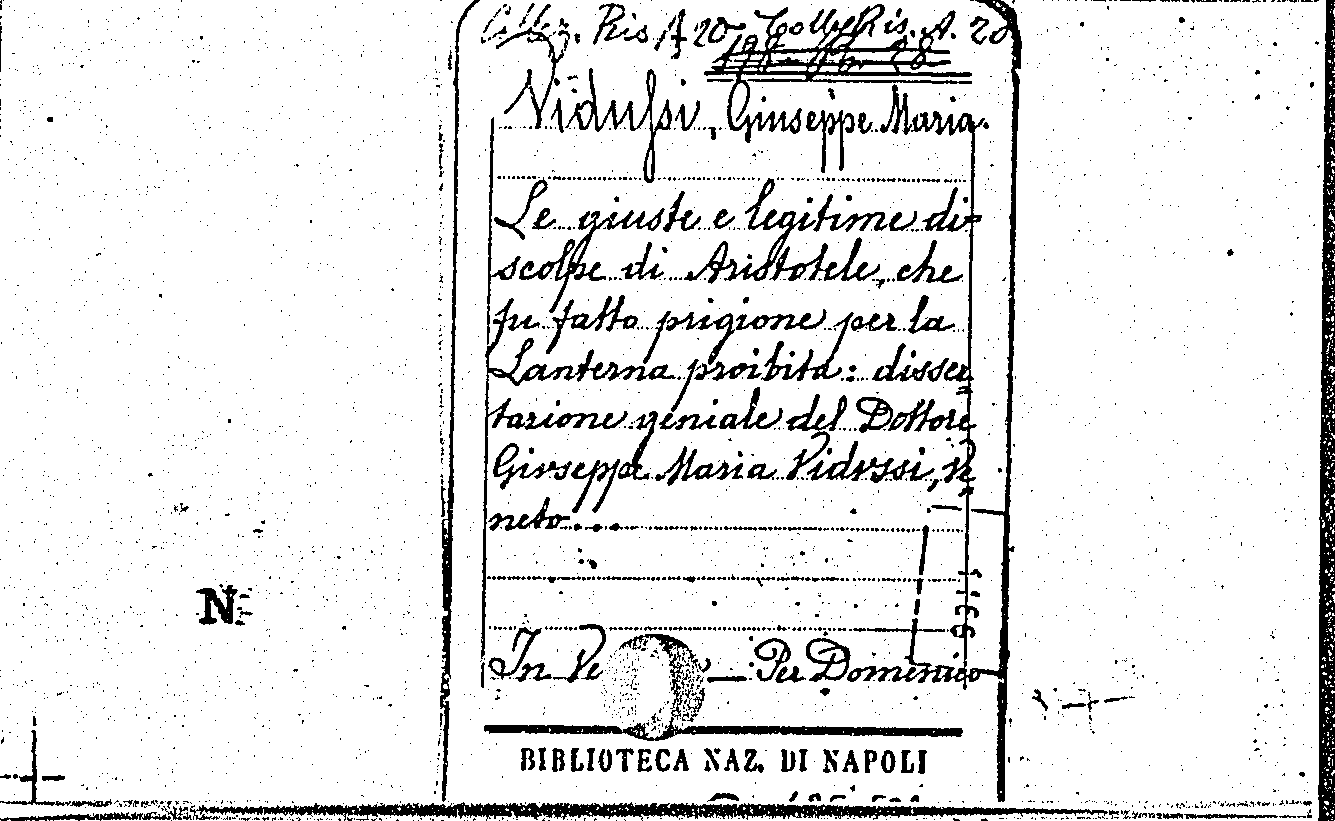 Collez. Ris. A. 20 Collez. Ris. A. 20
Vidussi, Giuseppe Maria.
Le giuste e legitime di-
scolpe di Aristotele, che
fu fatto prigione per la
Lanterna proibita: disser=
tazione geniale del Dottore
Giuseppe Maria Vidussi, Ve=
neto...
In Ve — Per Domenico
BIBLIOTECA NAZ. DI NAPOLI
N